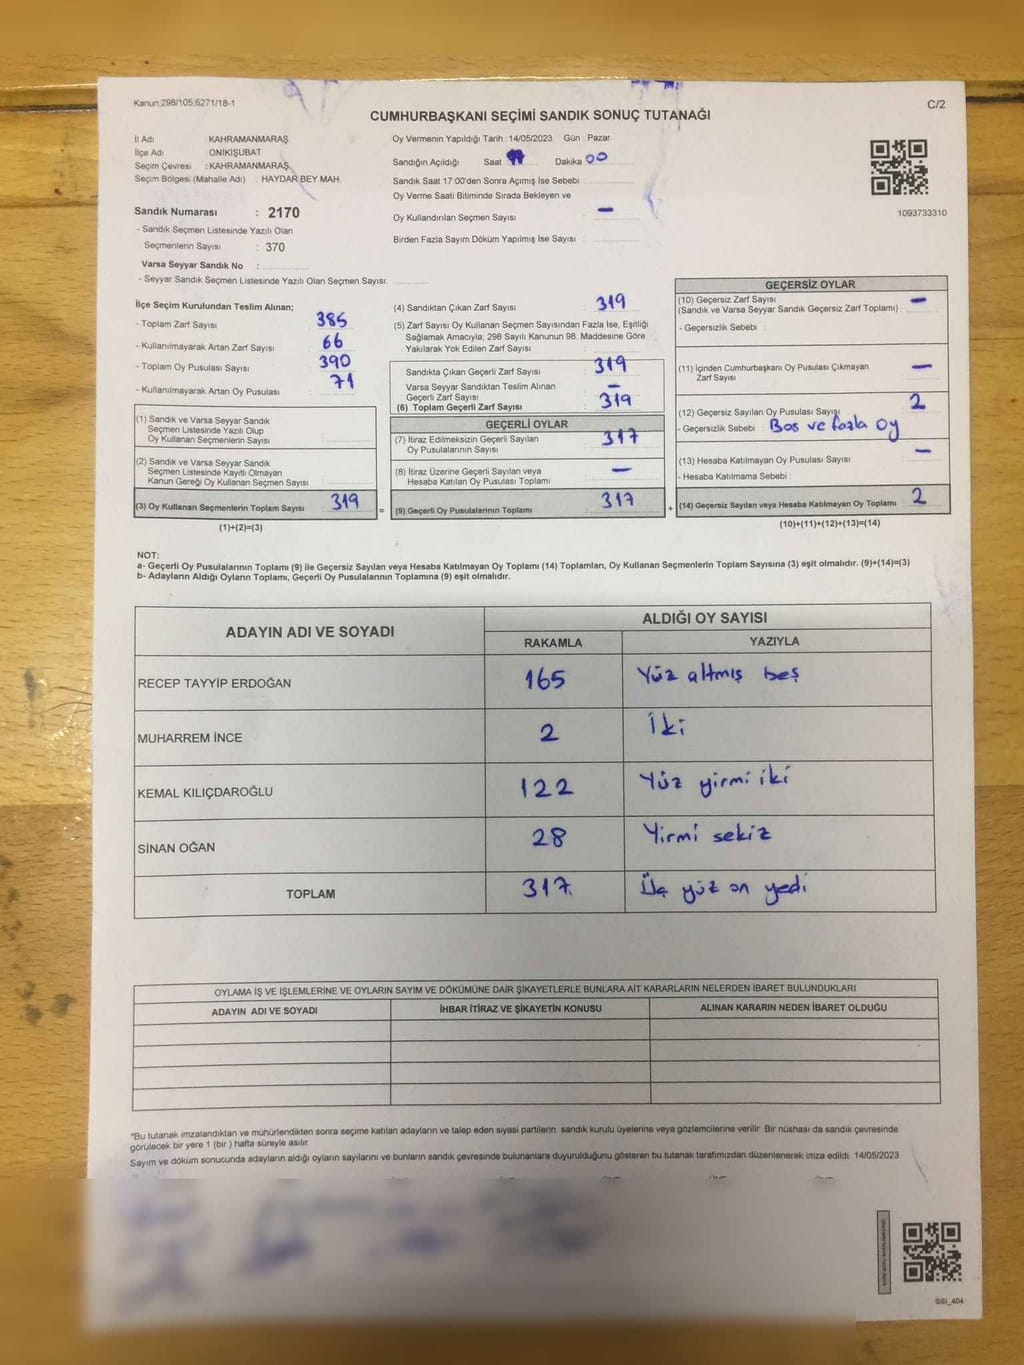 Kanun:298/105;6271/18-1
C/2
CUMHURBAŞKANI SEÇİMİ SANDIK SONUÇ TUTANAĞI
İl Adı KAHRAMANMARAŞ
İlçe Adı ONİKİŞUBAT
Seçim Çevresi : KAHRAMANMARAŞ
Seçim Bölgesi (Mahalle Adı) : HAYDAR BEY MAH.
Sandık Numarası : 2170
- Sandık Seçmen Listesinde Yazılı Olan
Seçmenlerin Sayısı : 370
Varsa Seyyar Sandık No :
- Seyyar Sandık Seçmen Listesinde Yazılı Olan Seçmen Sayısı:
Oy Vermenin Yapıldığı Tarih : 14/05/2023 Gün : Pazar
Sandığın Açıldığı Saat Dakika 00
Sandık Saat 17:00'den Sonra Açımış İse Sebebi :
Oy Verme Saati Bitiminde Sırada Bekleyen ve
Oy Kullandırılan Seçmen Sayısı : —
Birden Fazla Sayım Döküm Yapılmış İse Sayısı :
1093733310
İlçe Seçim Kurulundan Teslim Alınan;
- Toplam Zarf Sayısı : 385
- Kullanılmayarak Artan Zarf Sayısı : 66
- Toplam Oy Pusulası Sayısı : 390
- Kullanılmayarak Artan Oy Pusulası : 71
(1) Sandık ve Varsa Seyyar Sandık
Seçmen Listesinde Yazılı Olup
Oy Kullanan Seçmenlerin Sayısı :
(2) Sandık ve Varsa Seyyar Sandık
Seçmen Listesinde Kayıtlı Olmayan
Kanun Gereği Oy Kullanan Seçmen Sayısı :
(3) Oy Kullanan Seçmenlerin Toplam Sayısı : 319
(1)+(2)=(3)
=
(4) Sandıktan Çıkan Zarf Sayısı : 319
(5) Zarf Sayısı Oy Kullanan Seçmen Sayısından Fazla İse, Eşitliği
Sağlamak Amacıyla; 298 Sayılı Kanunun 98. Maddesine Göre
Yakılarak Yok Edilen Zarf Sayısı :
Sandıkta Çıkan Geçerli Zarf Sayısı : 319
Varsa Seyyar Sandıktan Teslim Alınan
Geçerli Zarf Sayısı : —
(6) Toplam Geçerli Zarf Sayısı : 319
GEÇERLİ OYLAR
(7) İtiraz Edilmeksizin Geçerli Sayılan
Oy Pusulalarının Sayısı : 317
(8) İtiraz Üzerine Geçerli Sayılan veya
Hesaba Katılan Oy Pusulası Toplamı : —
(9) Geçerli Oy Pusulalarının Toplamı : 317
+
GEÇERSİZ OYLAR
(10) Geçersiz Zarf Sayısı
(Sandık ve Varsa Seyyar Sandık Geçersiz Zarf Toplamı) : —
- Geçersizlik Sebebi :
(11) İçinden Cumhurbaşkanı Oy Pusulası Çıkmayan
Zarf Sayısı : —
(12) Geçersiz Sayılan Oy Pusulası Sayısı : 2
- Geçersizlik Sebebi : Bos ve fazla oy
(13) Hesaba Katılmayan Oy Pusulası Sayısı : —
- Hesaba Katılmama Sebebi :
(14) Geçersiz Sayılan veya Hesaba Katılmayan Oy Toplamı : 2
(10)+(11)+(12)+(13)=(14)
NOT:
a- Geçerli Oy Pusulalarının Toplamı (9) ile Geçersiz Sayılan veya Hesaba Katılmayan Oy Toplamı (14) Toplamları, Oy Kullanan Seçmenlerin Toplam Sayısına (3) eşit olmalıdır. (9)+(14)=(3)
b- Adayların Aldığı Oyların Toplamı, Geçerli Oy Pusulalarının Toplamına (9) eşit olmalıdır.
ADAYIN ADI VE SOYADI ALDIĞI OY SAYISI
RAKAMLA YAZIYLA
RECEP TAYYİP ERDOĞAN 165 Yüz altmış beş
MUHARREM İNCE 2 İki
KEMAL KILIÇDAROĞLU 122 Yüz yirmi iki
SİNAN OĞAN 28 Yirmi sekiz
TOPLAM 317 Üç yüz on yedi
OYLAMA İŞ VE İŞLEMLERİNE VE OYLARIN SAYIM VE DÖKÜMÜNE DAİR ŞİKAYETLERLE BUNLARA AİT KARARLARIN NELERDEN İBARET BULUNDUKLARI
ADAYIN ADI VE SOYADI İHBAR İTİRAZ VE ŞİKAYETİN KONUSU ALINAN KARARIN NEDEN İBARET OLDUĞU
*Bu tutanak imzalandıktan ve mühürlendikten sonra seçime katılan adayların ve talep eden siyasi partilerin sandık kurulu üyelerine veya gözlemcilerine verilir. Bir nüshası da sandık çevresinde
görülecek bir yere 1 (bir) hafta süreyle asılır.
Sayım ve döküm sonucunda adayların aldığı oyların sayılarını ve bunların sandık çevresinde bulunanlara duyurulduğunu gösteren bu tutanak tarafımızdan düzenlenerek imza edildi. 14/05/2023
SSI_404